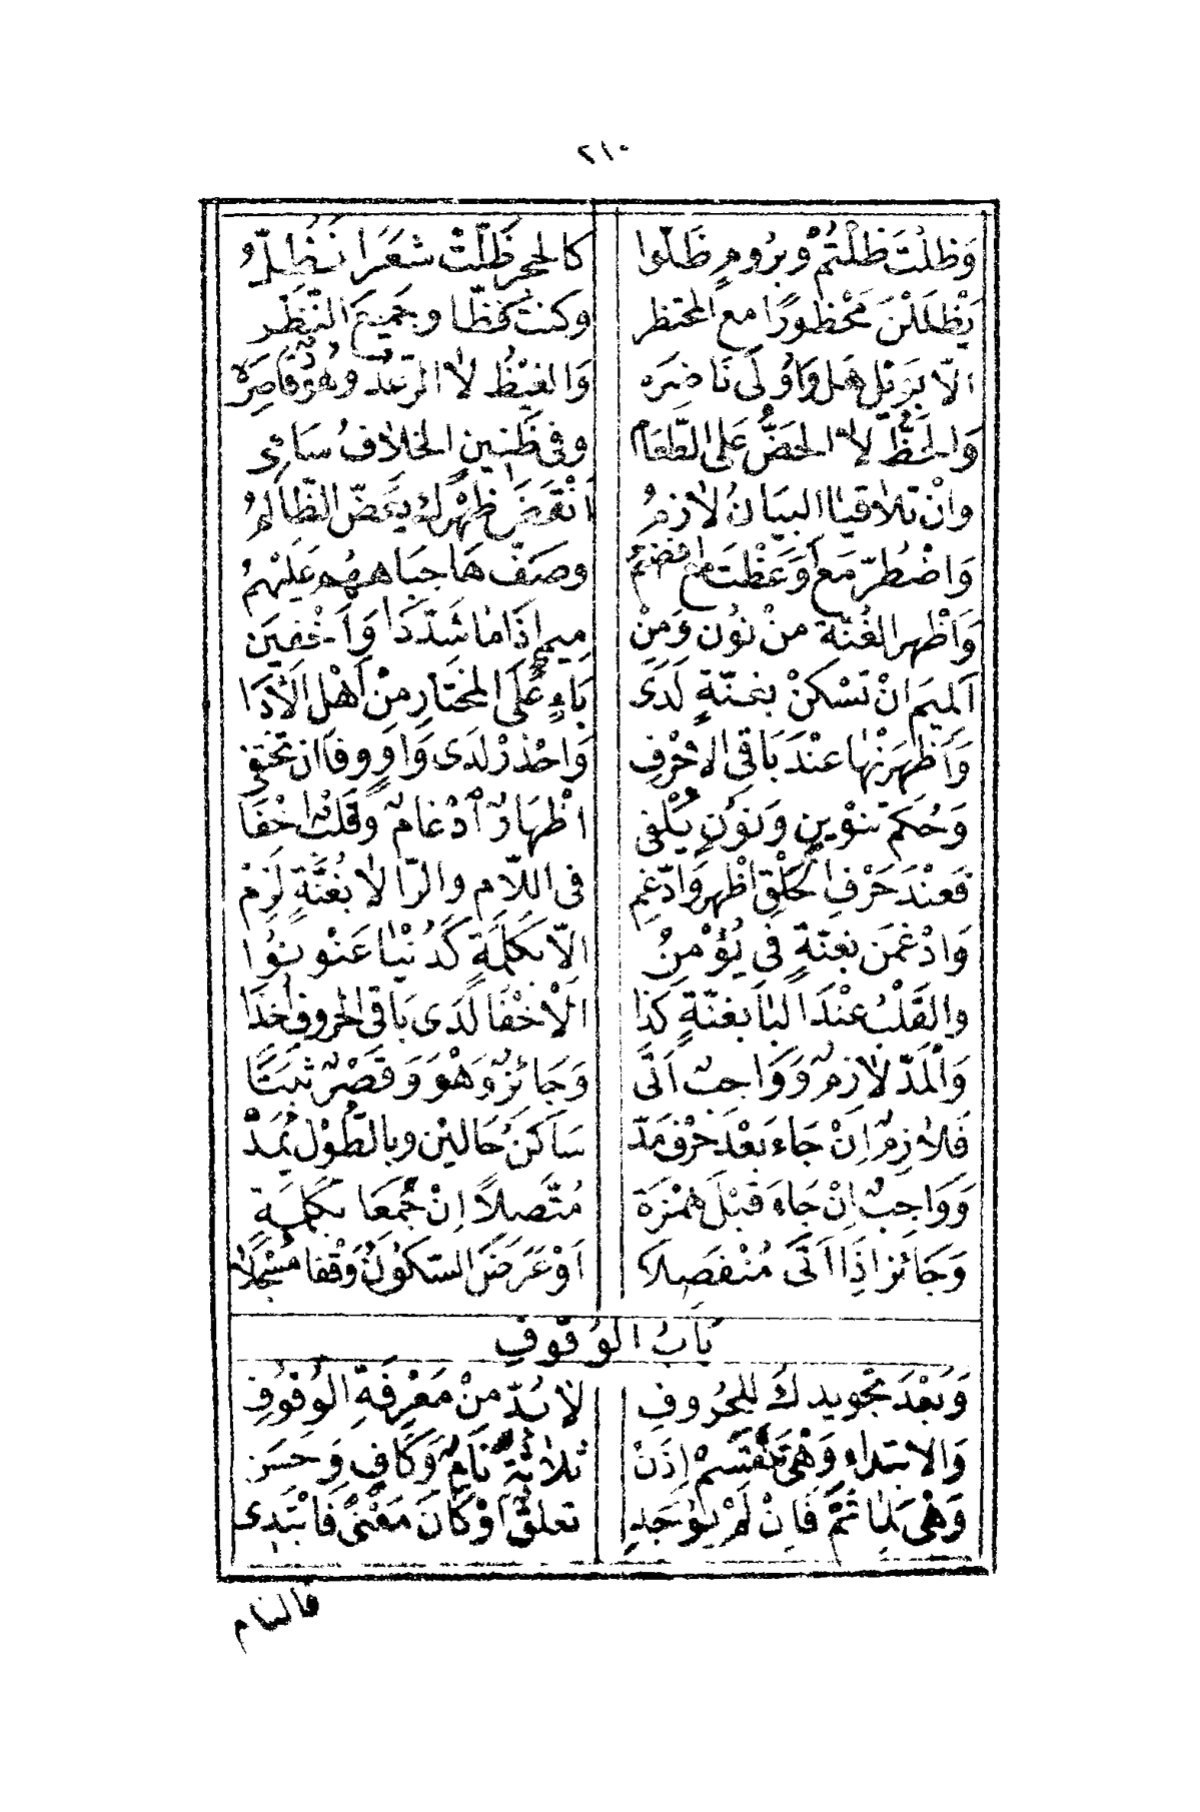 ٢١٠
وَظَلْتَ ظَلْتُمْ وَبِرُومٍ ظَلُّوا كَالْحِجْرِ ظَلَّتْ شُعَرَا نَظَلُّ
يَظْلَلْنَ مَحْظُورًا مَعَ الْمُحْتَظِرِ وَكُنْتَ فَظًّا وَجَمِيعَ النَّظَرِ
اِلَّا بِوَيْلٌ هَلْ وَاُولَى نَاضِرَه وَالْغَيْظُ لَا الرَّعْدُ وَهُودٌ قَاصِرَه
وَالْحَظُّ لَا الْحَضُّ عَلَى الطَّعَامِ وَفِى ظَنِينٍ الْخِلَافُ سَامِى
وَاِنْ تَلَاقَيَا الْبَيَانُ لَازِمُ اَنْقَضَ ظَهْرَكَ يَعَضُّ الظَّالِمُ
وَاضْطُرَّ مَعْ وَعَظْتَ مَعْ اَفَضْتُمُ وَصَفِّ هَا جِبَاهُهُمْ عَلَيْهِمُ
وَاَظْهِرِ الْغُنَّةَ مِنْ نُونٍ وَمِنْ مِيمٍ اِذَا مَا شُدِّدَا وَاَخْفِيَنْ
اَلْمِيمَ اِنْ تَسْكُنْ بِغُنَّةٍ لَدَى بَاءٍ عَلَى الْمُخْتَارِ مِنْ اَهْلِ الْاَدَا
وَاَظْهِرَنْهَا عِنْدَ بَاقِى الْاَحْرُفِ وَاحْذَرْ لَدَى وَاوٍ وَفَا اَنْ تَخْتَفِى
وَحُكْمُ تَنْوِينٍ وَنُونٍ يُلْفَى اِظْهَارٌ ادْغَامٌ وَقَلْبٌ اخْفَا
فَعِنْدَ حَرْفِ الْحَلْقِ اَظْهِرْ وَادَّغِمْ فِى اللَّامِ وَالرَّا لَا بِغُنَّةٍ لَزِمْ
وَادْغِمَنْ بِغُنَّةٍ فِى يُؤْمِنُ اِلَّا بِكِلْمَةٍ كَدُنْيَا عَنْوَنُوا
وَالْقَلْبُ عِنْدَ الْبَا بِغُنَّةٍ كَذَا اَلْاِخْفَا لَدَى بَاقِى الْحُرُوفِ اُخِذَا
وَالْمَدُّ لَازِمٌ وَوَاجِبٌ اَتَى وَجَائِزٌ وَهْوَ وَقَصْرٌ ثَبَتَا
فَلَازِمٌ اِنْ جَاءَ بَعْدَ حَرْفِ مَدّ سَاكِنُ حَالَيْنِ وَبِالطُّولِ يُمَدّ
وَوَاجِبٌ اِنْ جَاءَ قَبْلَ هَمْزَةِ مُتَّصِلًا اِنْ جُمِعَا بِكِلْمَةِ
وَجَائِزٌ اِذَا اَتَى مُنْفَصِلَا اَوْ عَرَضَ السُّكُونُ وَقْفًا مُسْجَلَا
بَابُ الْوُقُوفِ
وَبَعْدَ تَجْوِيدِكَ لِلْحُرُوفِ لَا بُدَّ مِنْ مَعْرِفَةِ الْوُقُوفِ
وَالْاِبْتِدَاءِ وَهْىَ تُقْسَمُ اِذَنْ ثَلَاثَةً تَامٌ وَكَافٍ وَحَسَنْ
وَهْىَ لِمَا تَمَّ فَاِنْ لَمْ يُوجَدِ تَعَلُّقٌ اَوْ كَانَ مَعْنًى فَابْتَدِى
فالتام